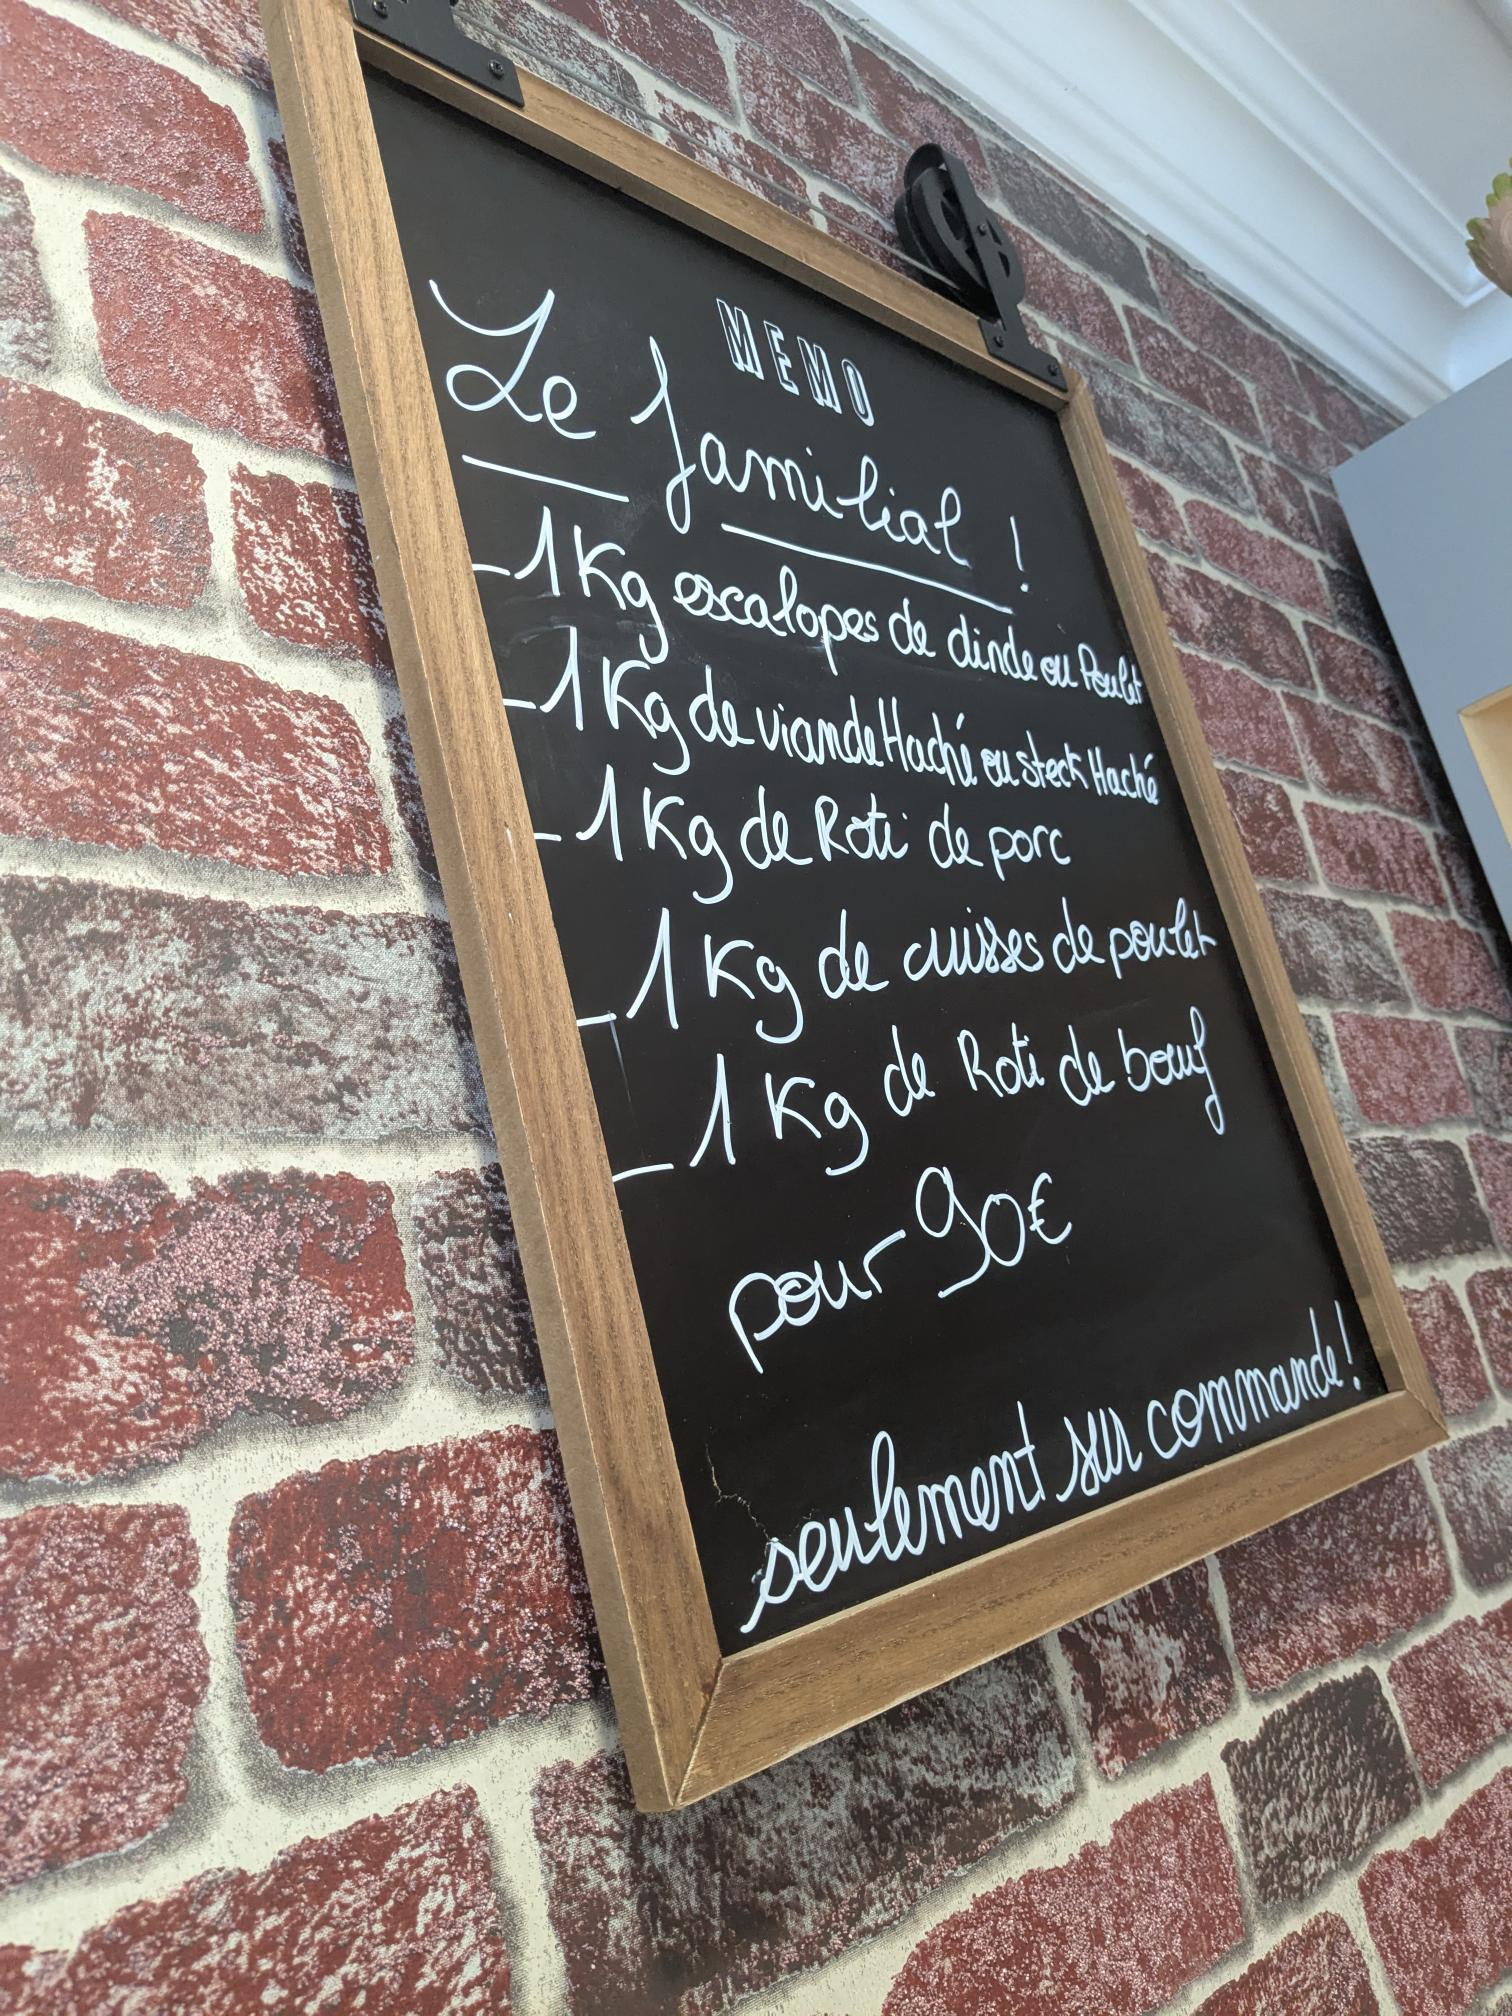 MEMO
Le familial !
- 1Kg escalopes de dinde ou Poulet
- 1Kg de viande Haché ou steck Haché
- 1Kg de Roti de porc
- 1Kg de cuisses de poulet
- 1Kg de Roti de bœuf
pour 90€
seulement sur commande !